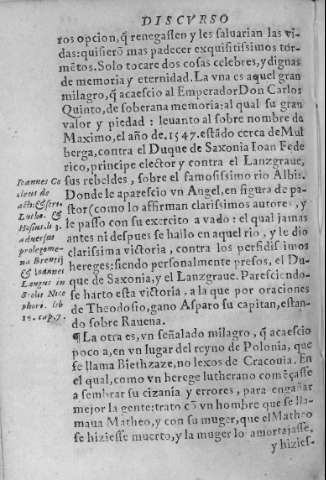 DISCVRSO
ros opcion, q̃ renegassen y les saluarian las vi-
das: quisierõ mas padecer exquisitissimos tor-
mẽtos. Solo tocare dos cosas celebres, y dignas
de memoria y eternidad. La vna es aquel gran
milagro, q̃ acaescio al Emperador Don Carlos
Quinto, de soberana memoria: al qual su gran
valor y piedad : leuanto al sobre nombre de
Maximo, el año de. 1547. estãdo cerca de Mul
berga, contra el Duque de Saxonia Ioan Fede
rico, principe elector y contra el Lanzgraue,
sus rebeldes , sobre el famosissimo rio Albis.
Donde le aparescio vn Angel, en figura de pa-
stor (como lo affirman clarissimos autores , y
le passo con su exercito a vado : el qual jamas
antes ni despues se hallo en aquel rio, y le dio
clarissima victoria , contra los perfidissimos
hereges: siendo personalmente presos, el Du-
que de Saxonia, y el Lanzgraue. Paresciendo-
se harto esta victoria . a la que por oraciones
de Theodosio, gano Asparo su capitan, estan-
do sobre Rauena.
¶ La otra es, vn señalado milagro , q̃ acaescio
poco a, en vn lugar del reyno de Polonia, que
se llama Biethzaze, no lexos de Cracouia. En
el qual, como vn herege lutherano comẽçasse
a sembrar su cizania y errores , para engañar
mejor la gente: trato cõ vn hombre que se lla-
maua Matheo, y con su muger, que el Matheo
se hiziesse muerto, y la muger lo amortajasse,
y hizies-
Ioannes Co
cleus de
act. & scri.
Luthe. &
Hosius. li. 3.
aduersus
prolegome-
na Brentij
& Ioannes
Langus in
Scolie Nice
phori. lib
14. cap. 7.